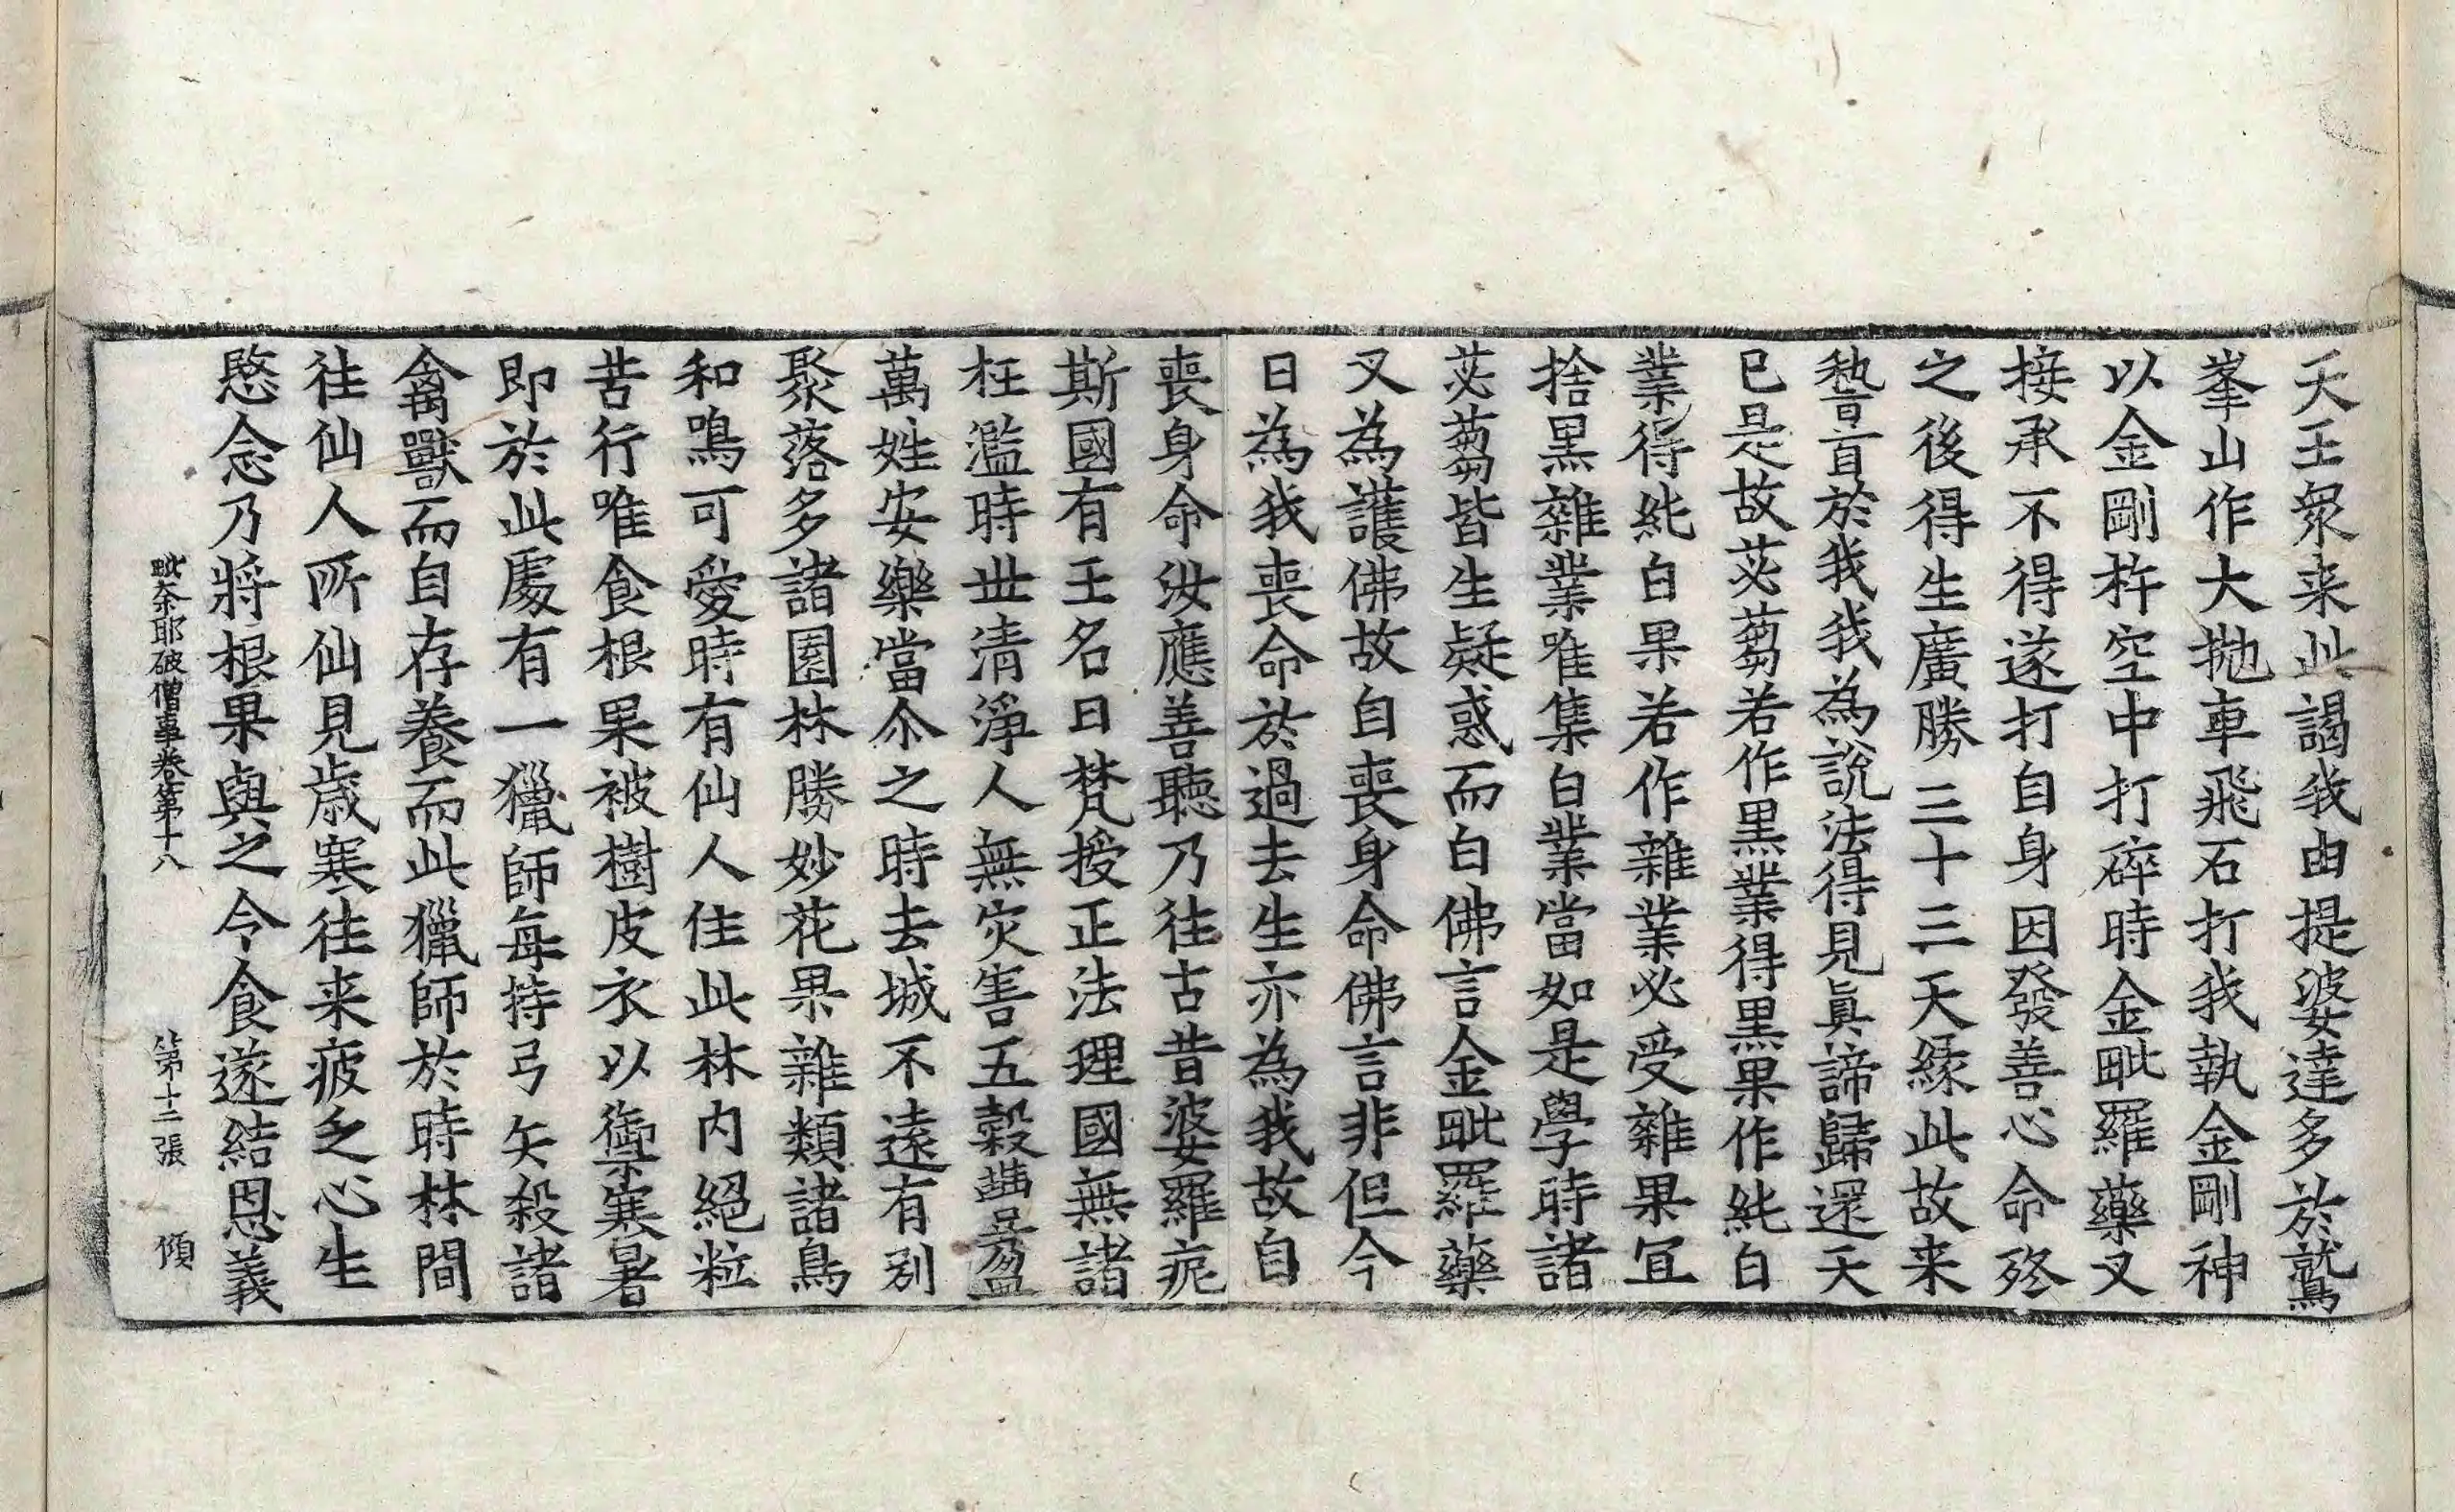 天王眾来此謁我由提婆達多於鷲
峯山作大拋車飛石打我執金剛神
以金剛杵空中打碎時金毗羅藥叉
接承不得遂打自身因發善心命終
之後得生廣勝三十三天縁此故来
暫盲於我我為說法得見真諦歸還天
已是故苾蒭若作黑業得黑果作純白
業得純白果若作雜業必受雜果冝
捨黑雜業唯集白業當如是學時諸
苾蒭皆生疑惑而白佛言金毗羅藥
叉為護佛故自喪身命佛言非但今
日為我喪命於過去生亦為我故自
喪身命汝應善聽乃往古昔婆羅痆
斯國有王名曰梵授正法理國無諸
枉濫時世清淨人無灾害五穀豊盈
萬姓安樂當尒之時去城不遠有別
聚落多諸園林勝妙花果雜類諸鳥
和鳴可愛時有仙人住此林内絕粒
苦行唯食根果被樹皮衣以禦寒暑
即於此處有一獵師每持弓矢殺諸
禽獸而自存養而此獵師於時林間
往仙人所仙見歳寒往来疲乏心生
愍念乃將根果與之令食遂結恩義
毗奈耶破僧事卷第十八 第十二張 傾